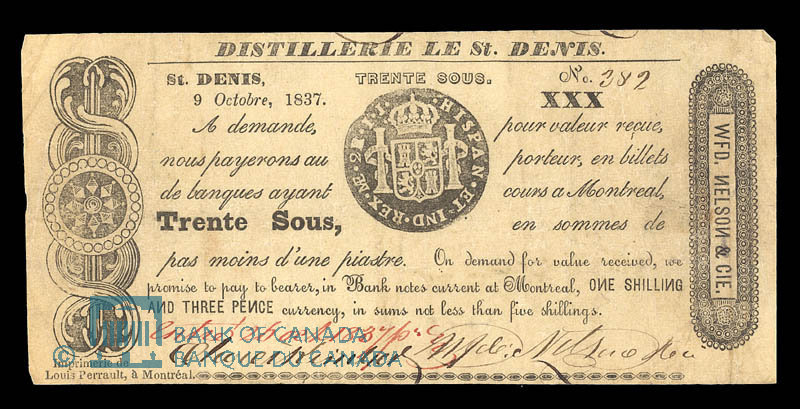 DISTILLERIE LE St. DENIS.
St. DENIS, TRENTE SOUS. No. 382
9 Octobre, 1837. XXX
A demande, pour valeur reçue,
nous payerons au porteur, en billets
de banques ayant cours a Montreal,
Trente Sous, en sommes de
pas moins d'une piastre. On demand for value received, we
promise to pay to bearer, in Bank notes current at Montreal, ONE SHILLING
AND THREE PENCE currency, in sums not less than five shillings.
HISPAN·ET·IND·REX·
WFD. NELSON & CIE.
© BANK OF CANADA
BANQUE DU CANADA
Nelson
Imprimerie de
Louis Perrault, à Montréal.